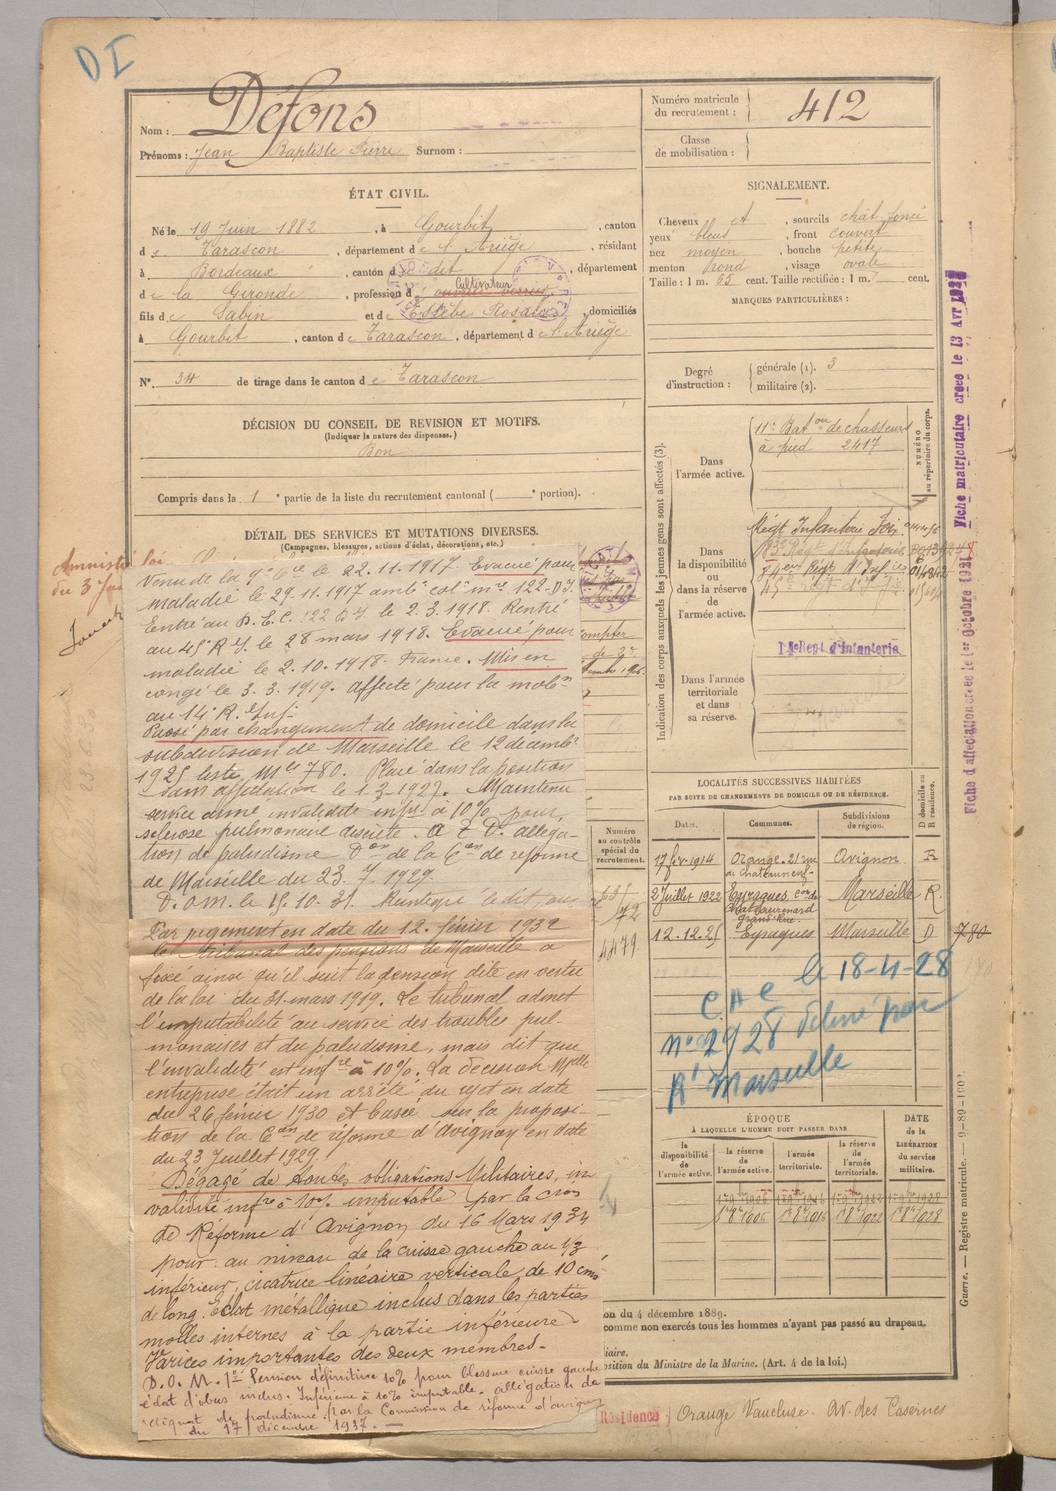 DI
Nom : Défons
Prénoms : Jean Baptiste Pierre Surnom :
Numéro matricule du recrutement : 412
Classe de mobilisation :
ÉTAT CIVIL.
Né le 19 Juin 1882, à Gourbit, canton
de Tarascon, département de l'Ariège, résidant
à Bordeaux, canton du dit, département
de la Gironde, profession d
cultivateur
fils de Sabin et de Estèbe Rosalie, domiciliés
à Gourbit, canton de Tarascon, département de l'Ariège
N°. 34 de tirage dans le canton de Tarascon
SIGNALEMENT.
Cheveux ct, sourcils chât. foncé
yeux bleus, front couvert
nez moyen, bouche petite
menton rond, visage ovale
Taille : 1 m. 65 cent. Taille rectifiée : 1 m. cent.
MARQUES PARTICULIÈRES :
Degré d'instruction : générale (1). 3
militaire (2).
DÉCISION DU CONSEIL DE REVISION ET MOTIFS.
(Indiquer la nature des dispenses.)
Bon
Compris dans la 1e partie de la liste du recrutement cantonal ( e portion).
DÉTAIL DES SERVICES ET MUTATIONS DIVERSES.
(Campagnes, blessures, actions d'éclat, décorations, etc.)
Amnistié loi
du 3 Jan
Venu de la 9e Cie le 22.11.1917. Evacué pour
maladie le 29.11.1917 ambce col. mre 122. D.I.
Entré au D.E.C. 122 D.I. le 2.3.1918. Rentré
au 45e R.I. le 28 mars 1918. Evacué pour
maladie le 2.10.1918. France. Mis en
congé le 3.3.1919. Affecté pour la mobon
au 14e R. Inf.
Passé par changement de domicile dans la
subdivision de Marseille le 12 décembre
1925 liste Mle 780. Placé dans la position
sans affectation le 1.3.1927. Maintenu
service armé invalidité infre à 10% pour
sclérose pulmonaire discrète. allega-
tion de paludisme Don de la Con de réforme
de Marseille du 23.7.1929.
D.O.M. le 15.10.31. Réintégré le dit jour
Par jugement en date du 12. février 1932
le tribunal des pensions de Marseille a
fixé ainsi qu'il suit la pension dite en vertu
de la loi du 31 mars 1919. Le tribunal admet
l'imputabilité au service des troubles pul-
monaires et du paludisme, mais dit que
l'invalidité est infre à 10%. La décision Melle
entreprise était un arrêté du rejet en date
du 26 février 1930 et basée sur la proposi-
tion de la Con de réforme d'Avignon en date
du 23 Juillet 1929.
Dégagé de toutes obligations Militaires, in
validité infre à 10% imputable par la Cion
de Réforme d'Avignon du 16 Mars 1934
pour : au niveau de la cuisse gauche au 1/3
inférieur, cicatrice linéaire verticale de 10 cms
de long. Éclat métallique inclus dans les parties
molles internes à la partie inférieure
Varices importantes des deux membres.
D.O.M. 1° Pension définitive 10% pour blessure cuisse gauche
éclat d'obus inclus. Inférieure à 10% imputable. allégation de
reliquat de paludisme par la Commission de réforme d'Avignon
du 17 décembre 1937.
Indication des corps auxquels les jeunes gens sont affectés (3).
Dans l'armée active.
11e Baton de chasseurs
à pied 2417
NUMÉRO au répertoire du corps.
Dans la disponibilité ou dans la réserve de l'armée active.
Régt Infanterie Foix
83e Régt d'Infanterie
Dans l'armée territoriale et dans sa réserve.
14e Regt d'Infanterie
Fiche matriculaire créée le 13 Avr
Fiche d'affectation créée le 1er Octobre 1921
LOCALITÉS SUCCESSIVES HABITÉES
PAR SUITE DE CHANGEMENTS DE DOMICILE OU DE RÉSIDENCE.
Numéro au contrôle spécial du recrutement.
Dates. Communes. Subdivisions de région. D domicile ou R résidence.
17 fév. 1914 Orange. 21 rue Avignon. R
2 Juillet 1922 Eyragues Marseille R.
72
4479
Grand'Rue.
12.12.25 Eyragues Marseille D 780
le 18-4-28
C A C
n° 2928 délivré par
Rt Marseille
ÉPOQUE
À LAQUELLE L'HOMME DOIT PASSER DANS
la disponibilité de l'armée active. la réserve de l'armée active. l'armée territoriale. la réserve de l'armée territoriale. DATE de la LIBÉRATION du service militaire.
1 8bre 1906 1 8bre 1916 1 8bre 1922 1 8bre 1928
on du 4 décembre 1889.
comme non exercés tous les hommes n'ayant pas passé au drapeau.
iaire.
osition du Ministre de la Marine. (Art. 4 de la loi.)
Résidence Orange Vaucluse. Av. des Casernes
Guerre. — Registre matricule. — 9-89-1000.